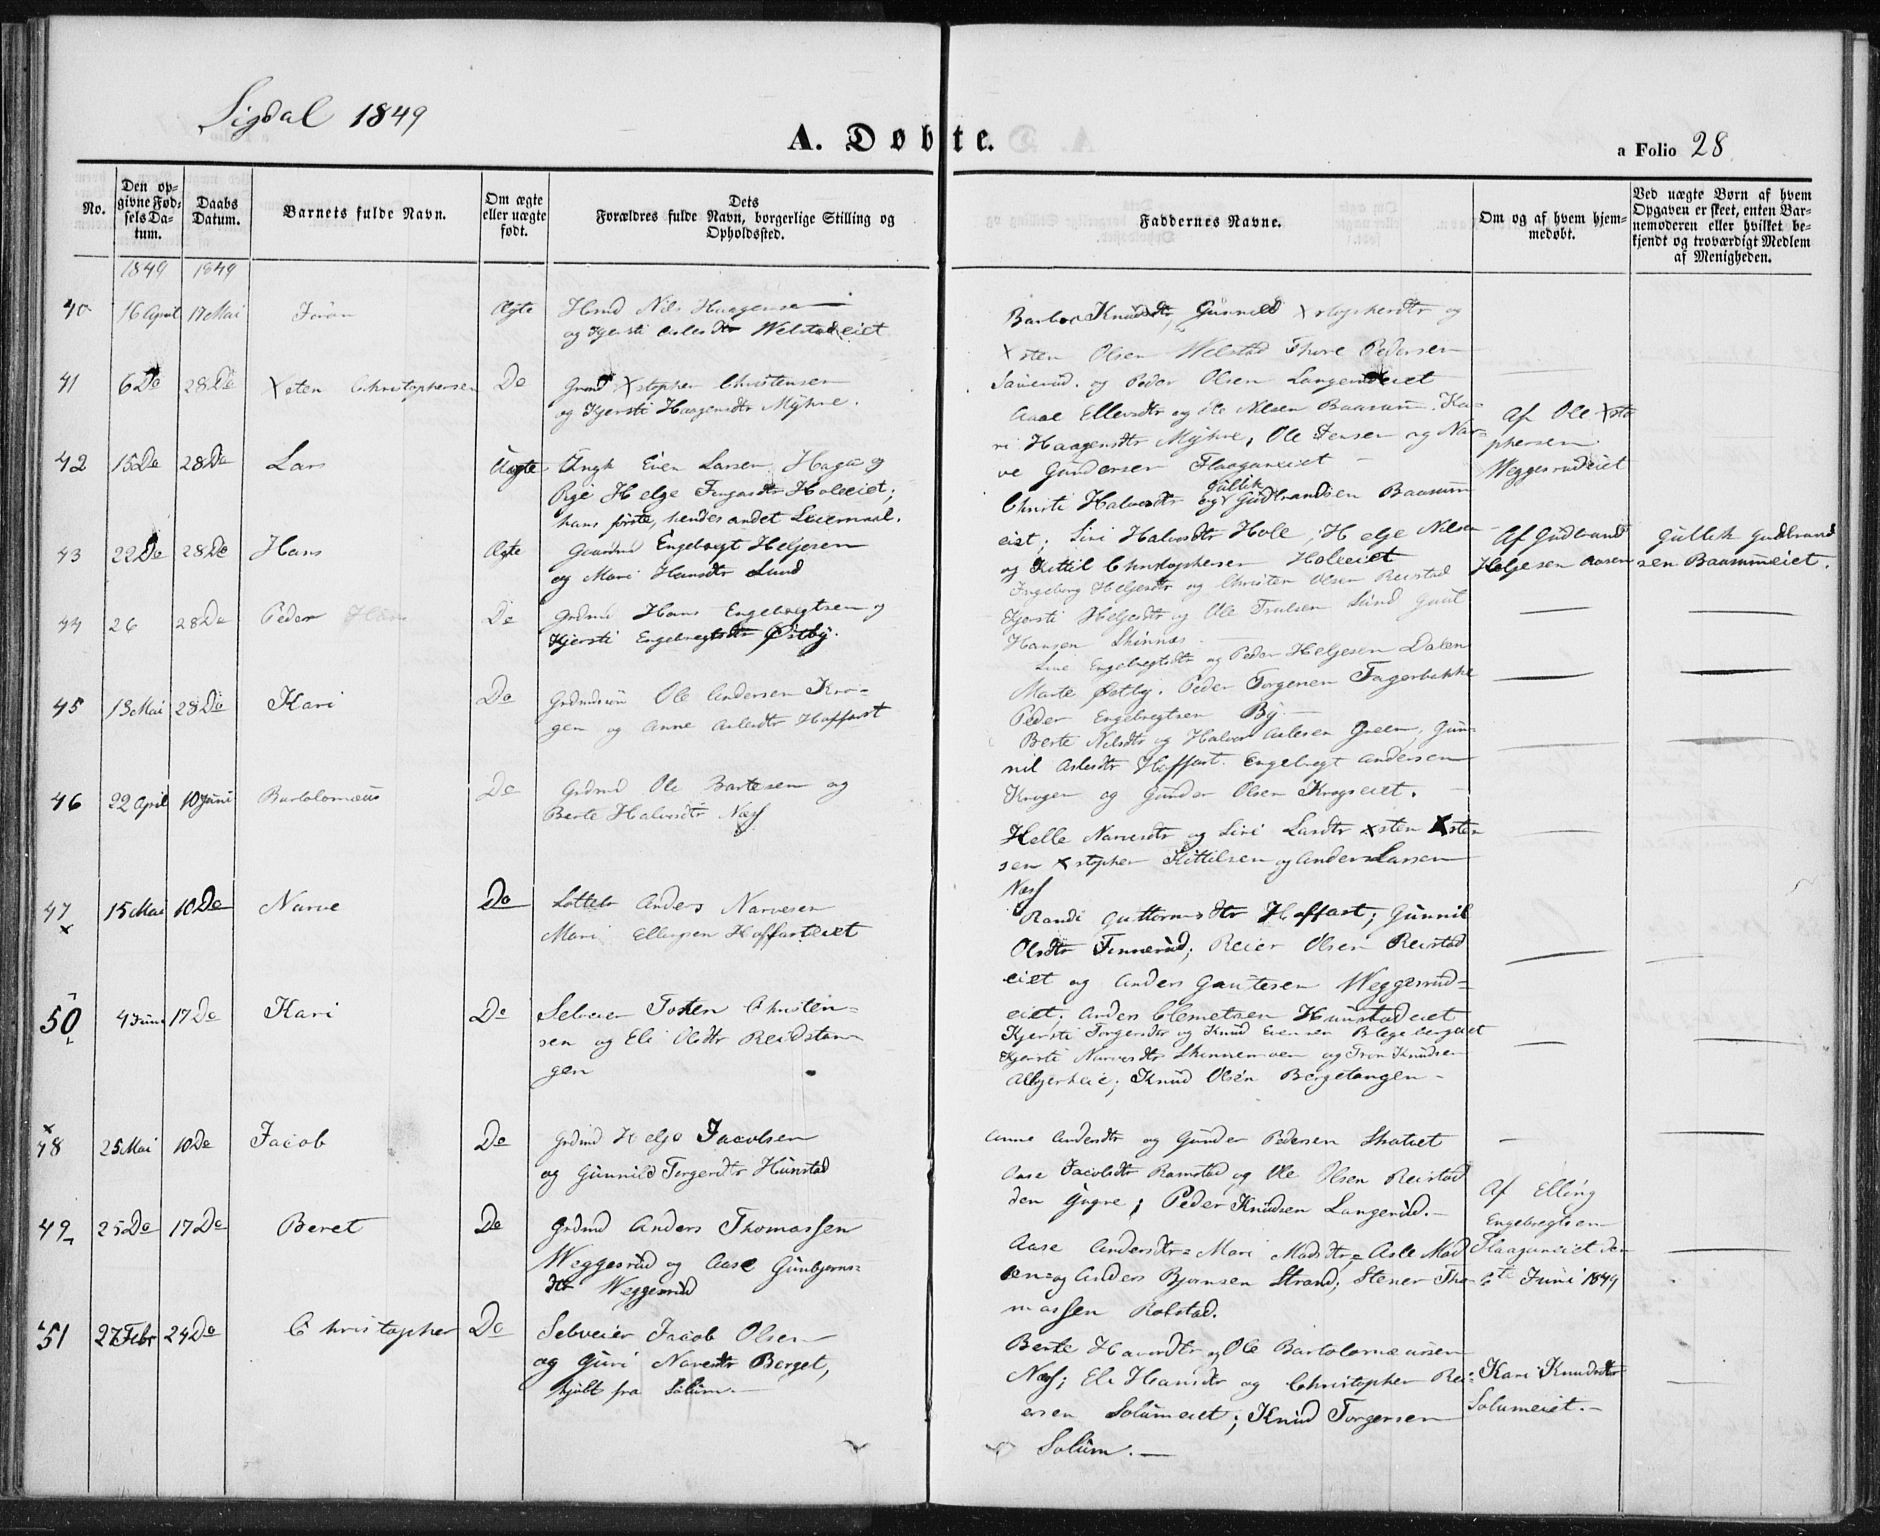 Sigdal 1849
A. Døbte.
a Folio 28
No.
Den op-
givne Fød-
sels Da-
tum.
Daabs
Datum.
Barnets fulde Navn.
Om ægte
eller uægte
født.
Dets
Forældres fulde Navn, borgerlige Stilling og
Opholdssted.
Faddernes Navne.
Om og af hvem hjem-
medøbt.
Ved uægte Børn af hvem
Opgaven er skeet, enten Bar-
nemoderen eller hvilket be-
kjendt og troværdigt Medlem
af Menigheden.
1849 1849
40 16 April 17 Mai Jøran Ægte Husmd Nils Haagensen
og Kjersti Aslesdtr Welstadeiet
Barbro Knudsdtr, Gunnild Xstophersdtr og
Xsten Olsen Welstad Thore Pedersen
Sauerud. og Peder Olsen Langerudeiet
41 6 Do 28 Do Xsten Christophersen Do Grdmd Xstopher Christensen
og Kjersti Haagensdtr Myhre.
Aase Ellevsdtr og Ole Nilsen Baasum. Ka-
ri Haagensdtr Myhre, Ole Jensen og Nar-
ve Gundersen Flaaganeiet
Af Ole Xsto
phersen
Weggesrudeiet
42 15 Do 28 Do Lars Uægte Ungk Even Larsen Haga og
Pige Helge Tingasdtr Holeeiet;
hans første, hendes andet Leiermaal.
Christi Halvosdtr og Gullik Gudbrandsen Baasum
eiet; Siri Halvosdtr Hole, Helge Nilsen
og Kittil Christophersen Holeeiet
Af Gudbrand
Helgesen Aasen
Gullik Gudbrand
sen Baasumeiet.
43 22 Do 28 Do Hans Ægte Gaardmd Engebregt Helgesen
og Mari Hansdtr Lund
Ingeborg Helgesdtr og Christen Olsen Reistad
Kjersti Helgesdtr og Ole Truulsen Lund Gaut
Hansen Skinnes.
44 26 28 Do Peder Do Grdmd Hans Engebregtsen og
Kjersti Engebregtsdtr Østby.
Line Engebregtsdtr og Peder Helgesen Dalen
Marte Østby. Peder Torgersen Fagerbakke
Peder Engebregtsen By
45 13 Mai 28 Do Kari Do Grdmdssøn Ole Andersen Kro-
gen og Anne Aslesdtr Hoffart
Berte Nilsdtr og Halvor Aslesen Green, Gun-
nil Aslesdtr Hoffart. Engebregt Andersen
Krogen og Gunder Olsen Krogseiet.
46 22 April 10 Juni Bartolomæus Do Grdmd Ole Bartesen og
Berte Halvosdtr Næss
Helle Narvesdtr og Siri Larsdtr Xsten Xsten
sen Xstopher Kittilsen og Anders Larsen
Næss
47 15 Mai 10 Do Narve Do Anders Narvesen
Mari Ellingsen Hoffarteiet
Randi Guttormsdtr Hoffart; Gunnil
Olsdtr Finnerud; Reier Olsen Reistad
eiet og Anders Gautesen Weggesrud-
eiet; Anders Clemetsen Hunstadeiet
50 4 Juni 17 Do Kari Do Selveier Torsten Christen-
sen og Eli Olsdtr Reidstan
gen
Kjersti Torgersdtr og Knud Evensen Blegebergeiet
Kjersti Narvesdtr Skinnemoen og Tron Knudsen
Albjerheie; Knud Olsen Bergetangen
48 25 Mai 10 Do Jacob Do Grdmd Helge Jacobsen
og Gunnild Torgersdtr Hunstad
Anne Andersdtr og Gunder Pedersen Skateiet
Aase Jacobsdtr Ramstad og Ole Olsen Reistad
den Yngre; Peder Knudsen Langerud.
49 25 Do 17 Do Beret Do Grdmd Anders Thomassen
Weggesrud og Aase Gunbjørns-
dtr Weggesrud
Aase Andersdtr Mari Madsdtr Asle Mad
sen og Anders Bjørnsen Strand; Stener Tho-
massen Rolstad.
Af Elling
Engebregtsen
Flaaganeiet den
6te Juni 1849
51 27 Febr 24 Do Christopher Do Selveier Jacob Olsen
og Guri Narvesdtr Berget,
kjøbt fra Solum.
Berte Havordtr og Ole Bartolomæussen
Næss; Eli Hansdtr og Christopher Rei-
ersen Solumeiet; Knud Torgersen
Solum.
Kari Knudsdtr
Solumeiet.